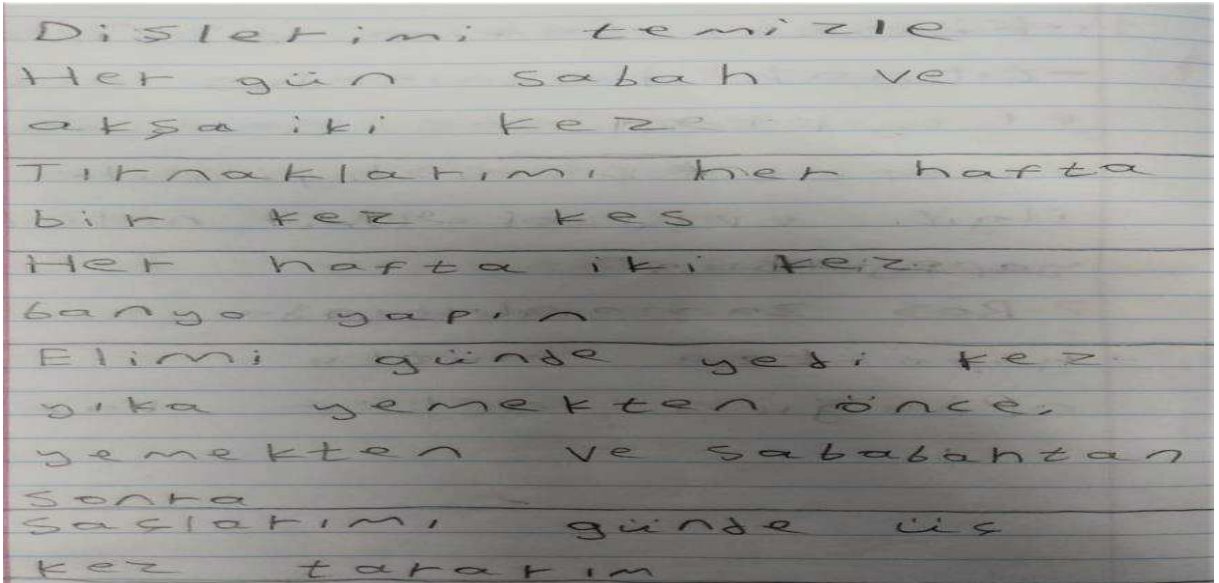 Dişlerimi temizle
Her gün sabah ve
akşa iki kez
Tırnaklarımı her hafta
bir kez kes
Her hafta iki kez
banyo yapın
Elimi günde yedi kez
yıka yemekten önce,
yemekten ve sababahtan
sonra
Saçlarımı günde üç
kez tararım